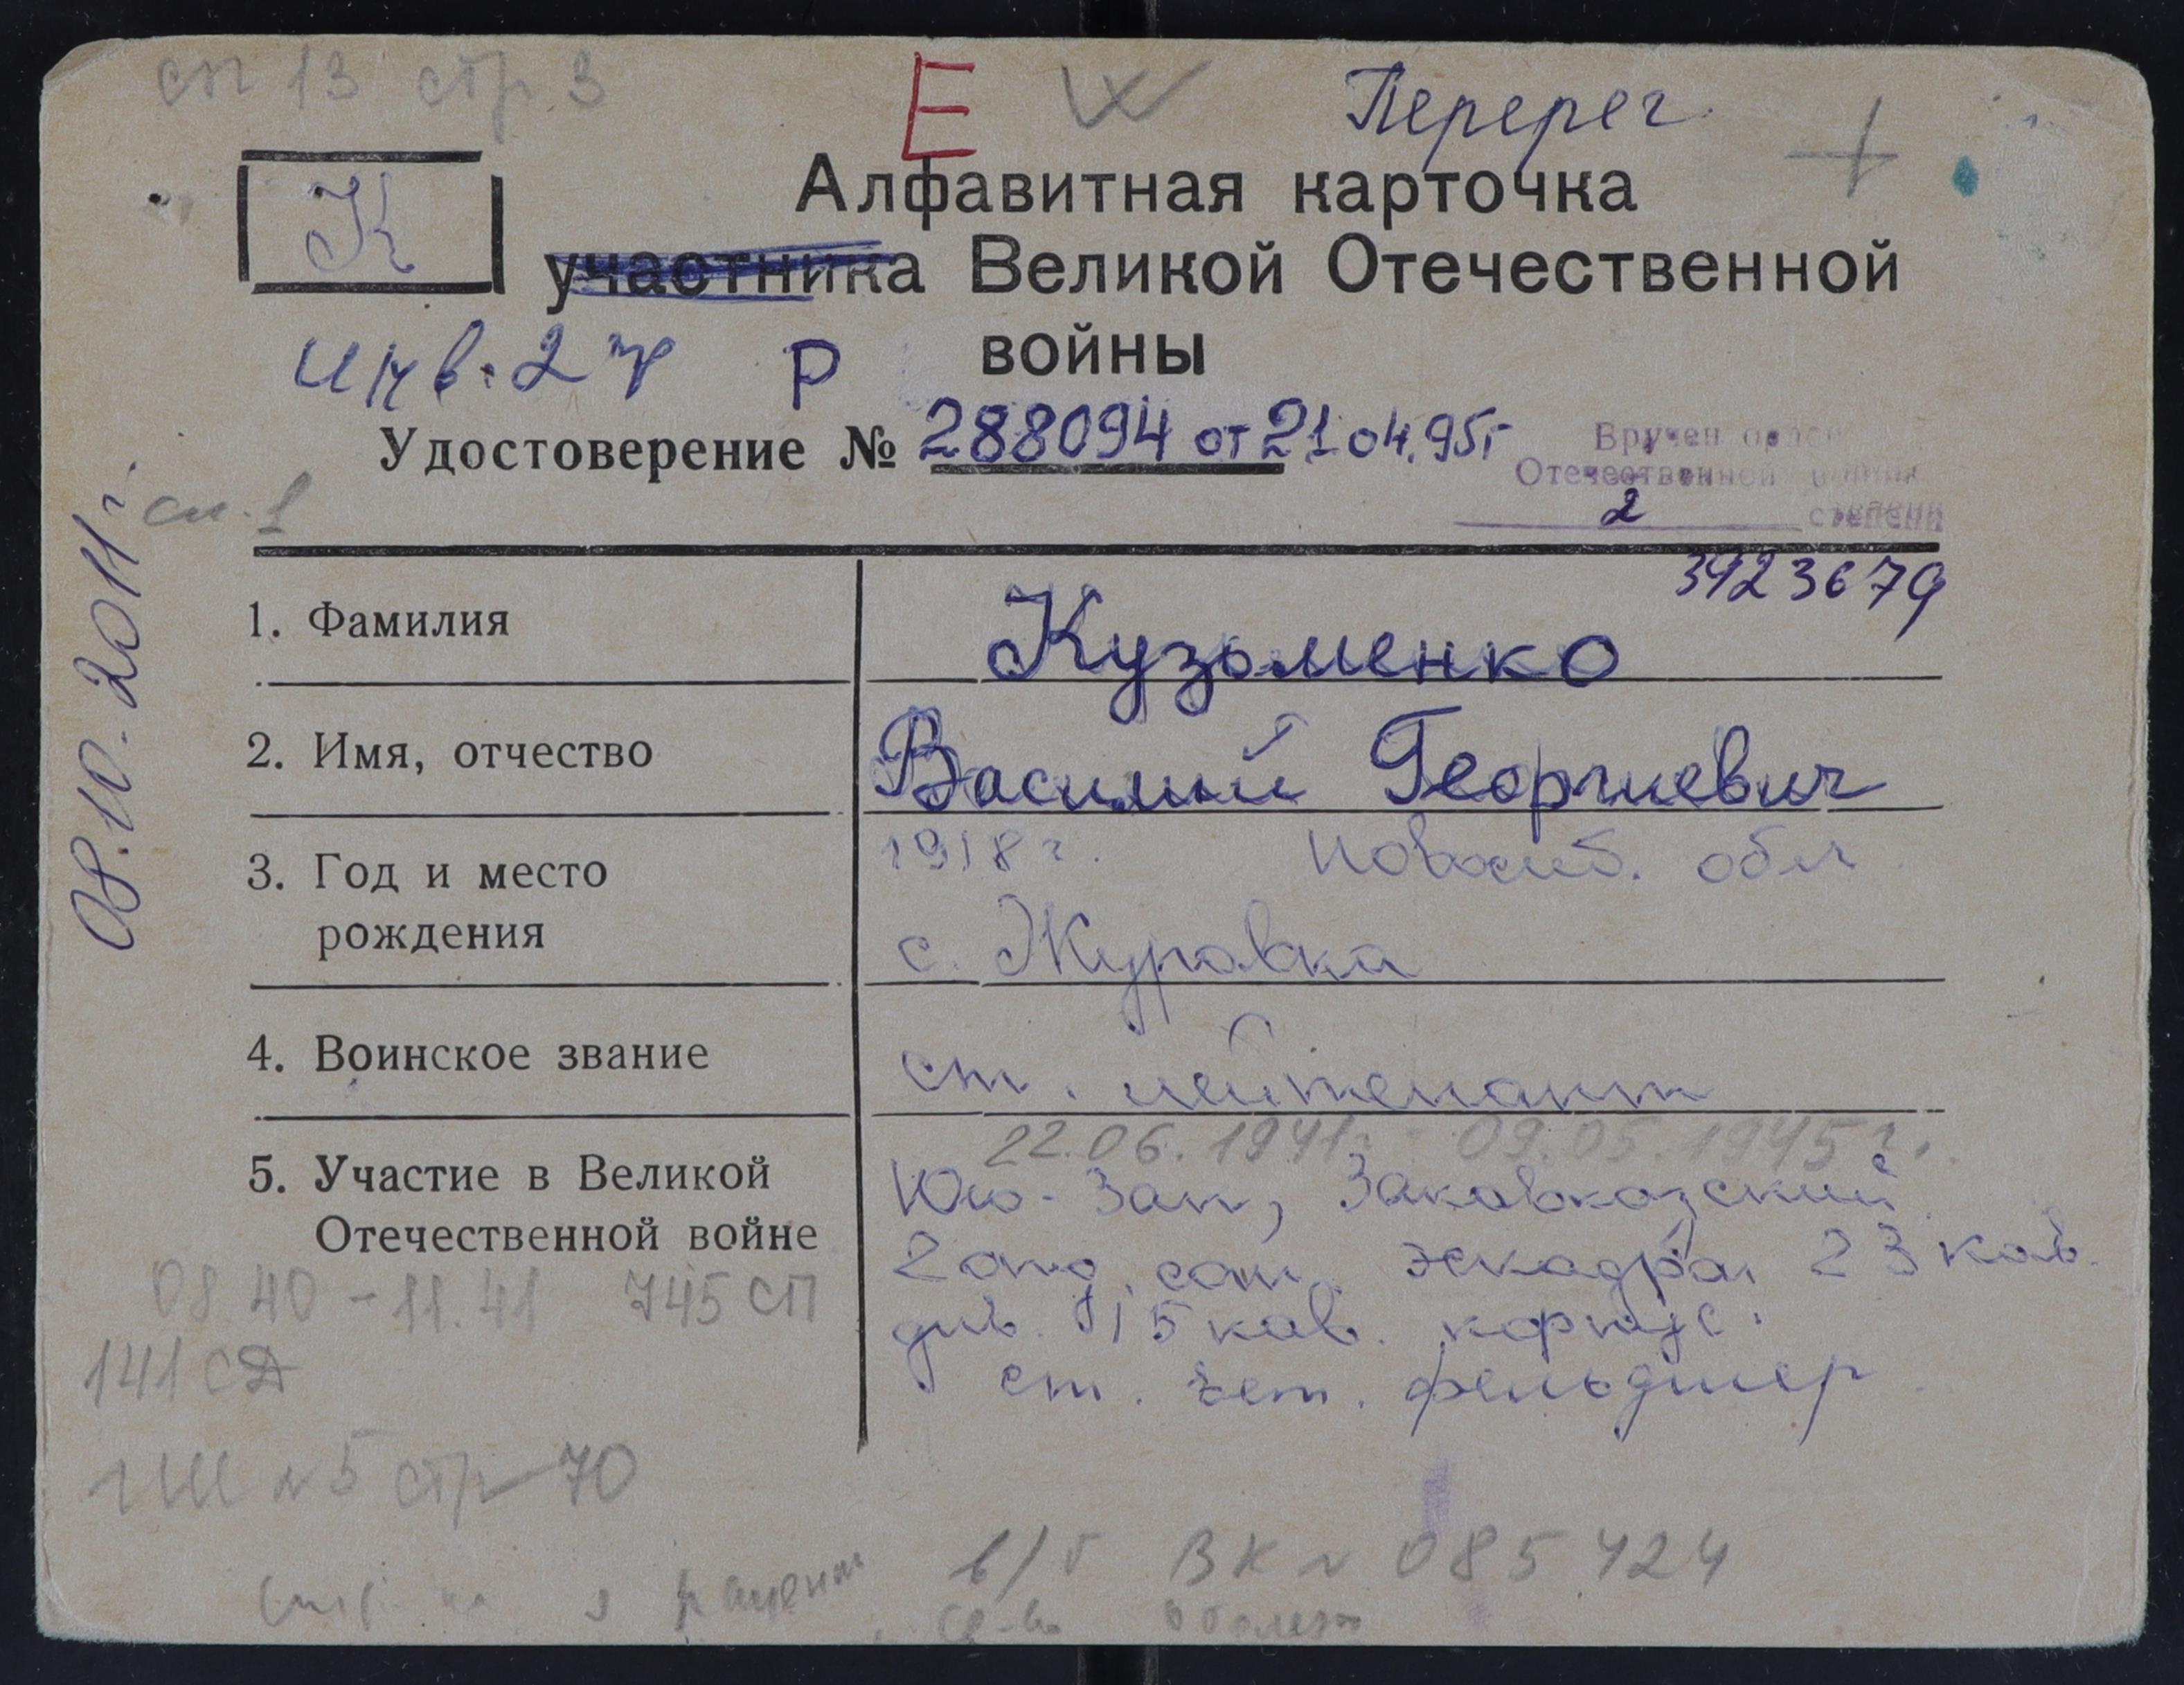 сп 13 стр. 3
Е
Перерег
К
Алфавитная карточка
участника Великой Отечественной
войны
инв. 2 гр Р
Удостоверение № 288094 от 21.04.95г
Вручен орден
Отечественной войны
2 степени
сп. 1
08.10.2011г
3423679
1. Фамилия Кузьменко
2. Имя, отчество Василий Георгиевич
3. Год и место рождения 1918г. Новосиб. обл
с. Журавка
4. Воинское звание ст. лейтенант
22.06.1941г - 09.05.1945г.
5. Участие в Великой Отечественной войне Юго-Зап, Закавказский
2 отд. сап. эскадрон 23 кав.
див. 15 кав. корпус.
ст. вет. фельдшер
08.40 - 11.41 745 СП
141 СД
№ 5 стр 70
в/б ВК № 085424
св-во о болезн